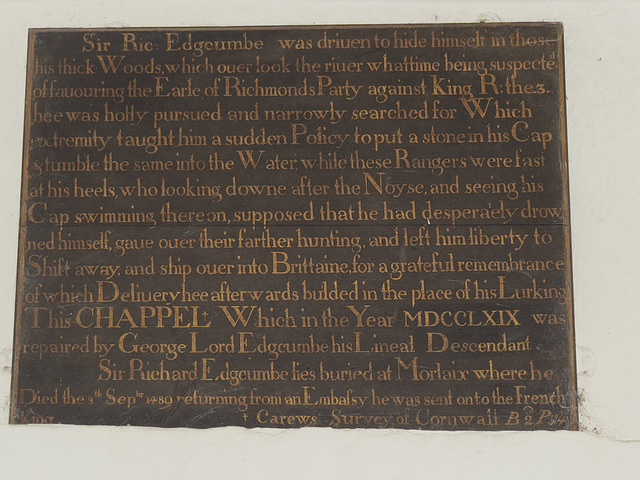 Sir Ric: Edgcumbe was driuen to hide himself in those
his thick Woods, which ouer look the riuer whattime being suspected
of fauouring the Earle of Richmonds Party against King R: the 3.
hee was hotly pursued and narrowly searched for Which
extremity taught him a sudden Policy to put a stone in his Cap
& tumble the same into the Water, while these Rangers were fast
at his heels, who looking downe after the Noyse, and seeing his
Cap swimming thereon, supposed that he had desperately drow
ned himself, gaue ouer their farther hunting, and left him liberty to
Shift away, and ship ouer into Brittaine, for a grateful remembrance
of which Deliuery hee afterwards builded in the place of his Lurking
This CHAPPEL† Which in the Year MDCCLXIX was
repaired by George Lord Edgcumbe his Lineal Descendant.
Sir Richard Edgcumbe lies buried at Morlaix where he
Died the 8th Sepbr 1489 returning from an Embassy he was sent on to the French
King. † Carews Survey of Cornwall B 2 P